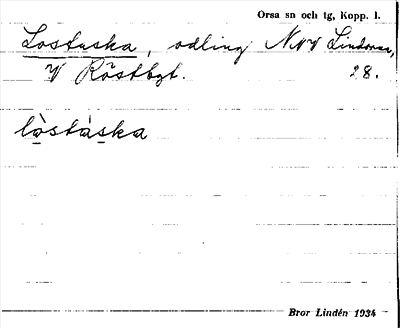 Orsa sn och tg, Kopp. l.
Lostaska, odling NNV Lindorna,
V Röstbgt. 28.
lòstàska
Bror Lindén 1934